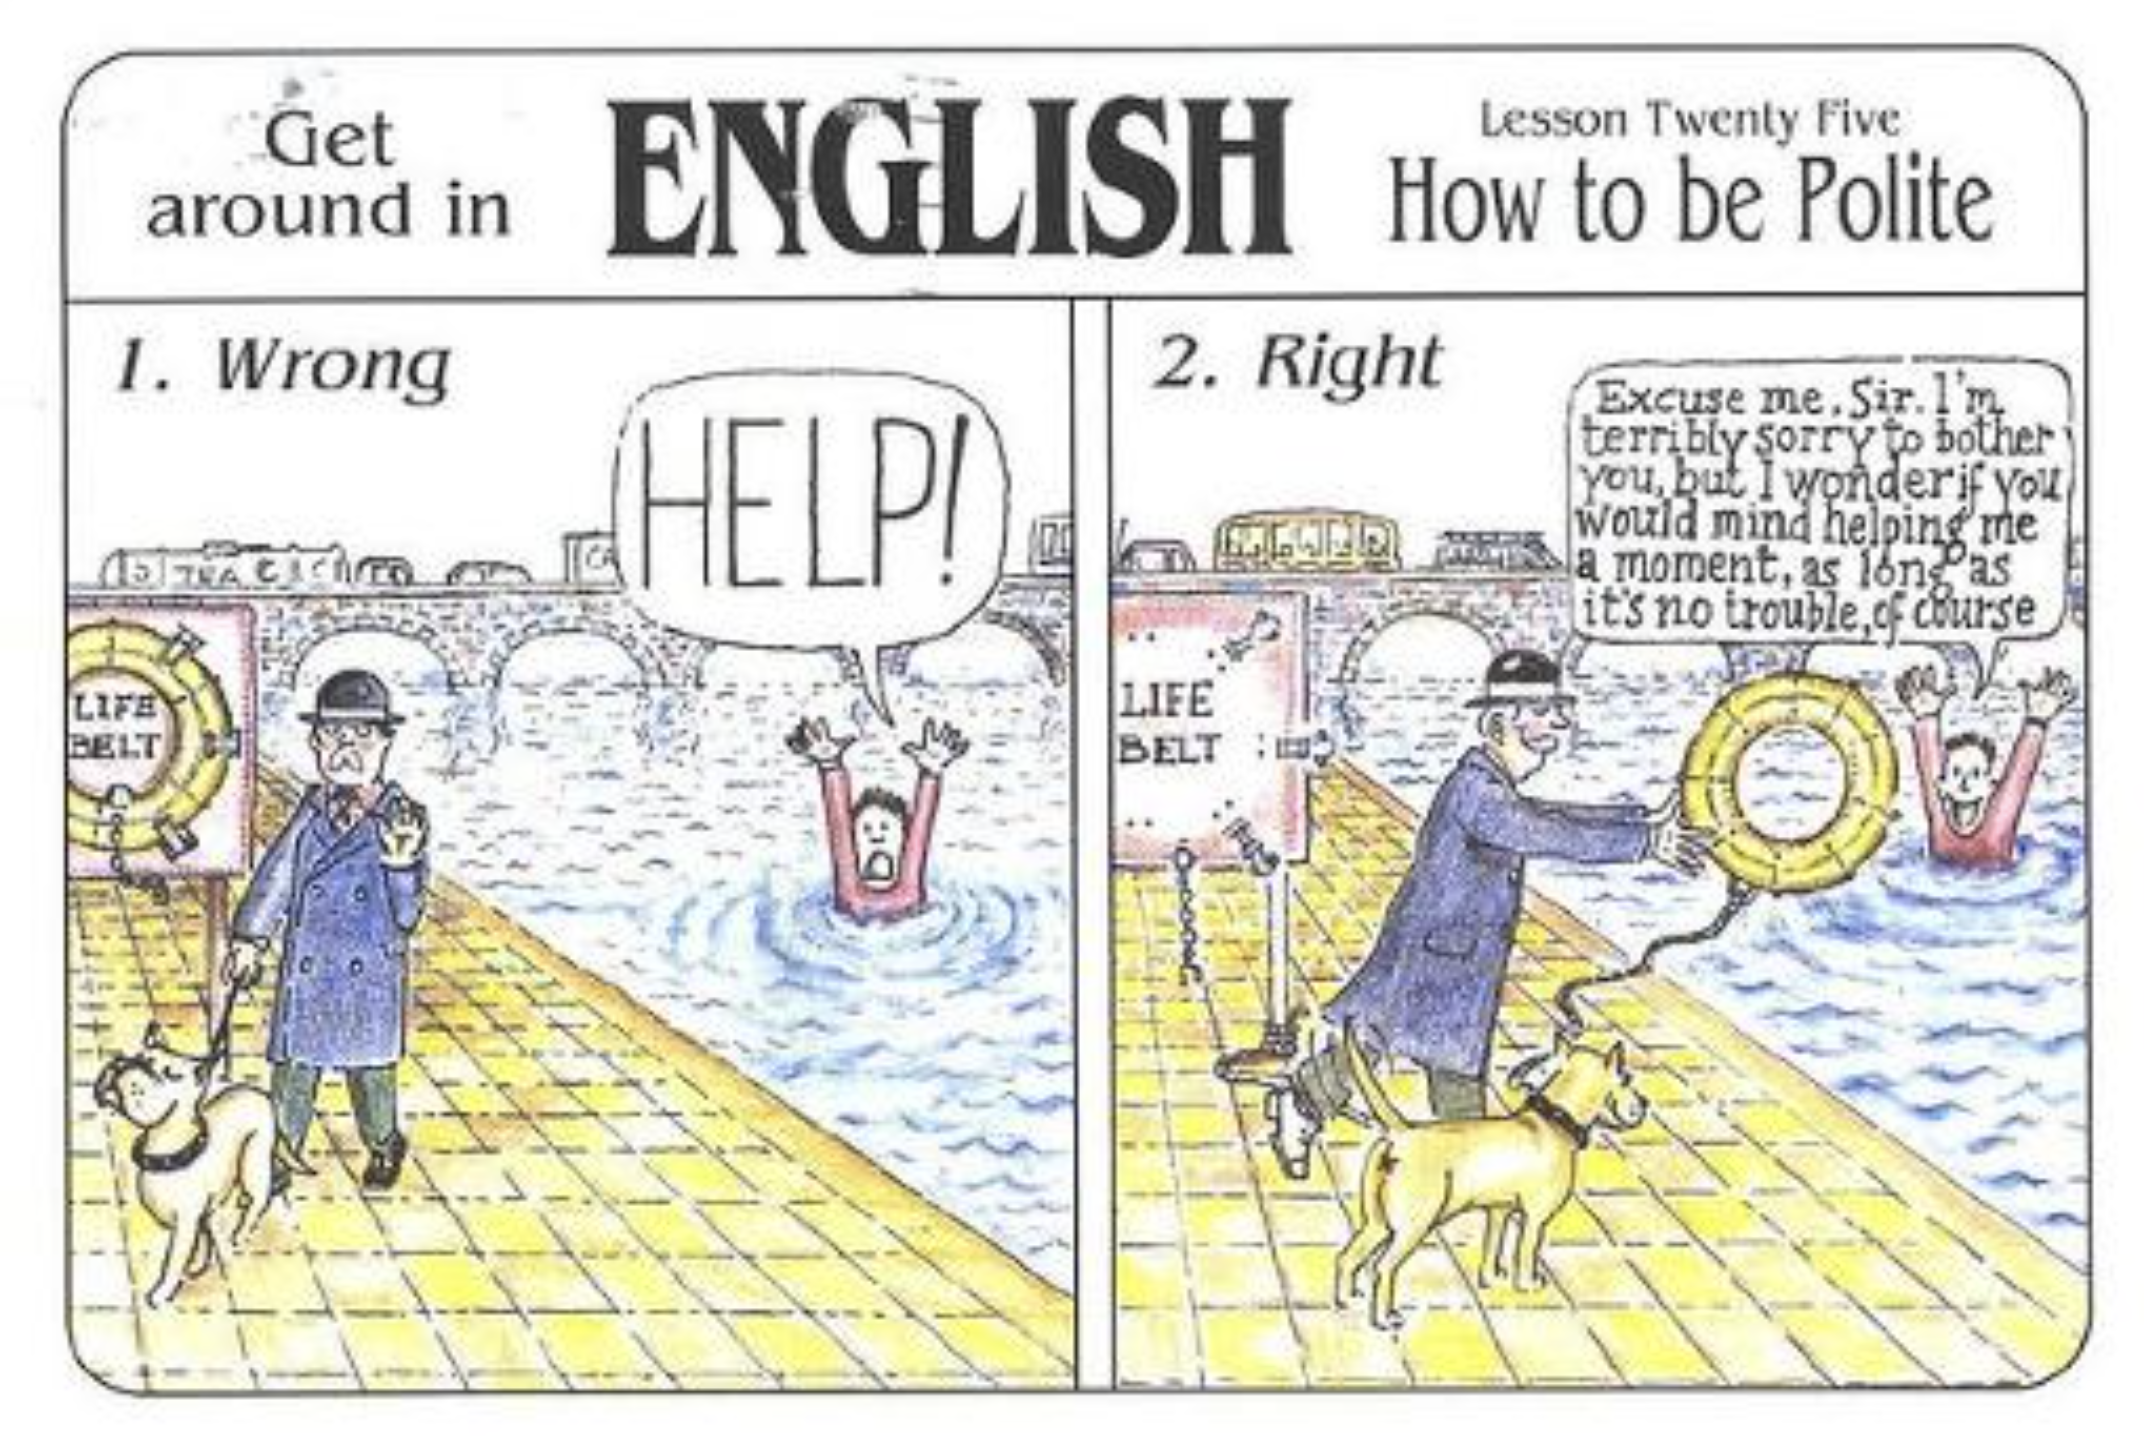 Get
around in
ENGLISH
Lesson Twenty Five
How to be Polite
1. Wrong
HELP!
LIFE
BELT
2. Right
Excuse me, Sir. I'm
terribly sorry to bother
you, but I wonder if you
would mind helping me
a moment, as long as
it's no trouble, of course
LIFE
BELT